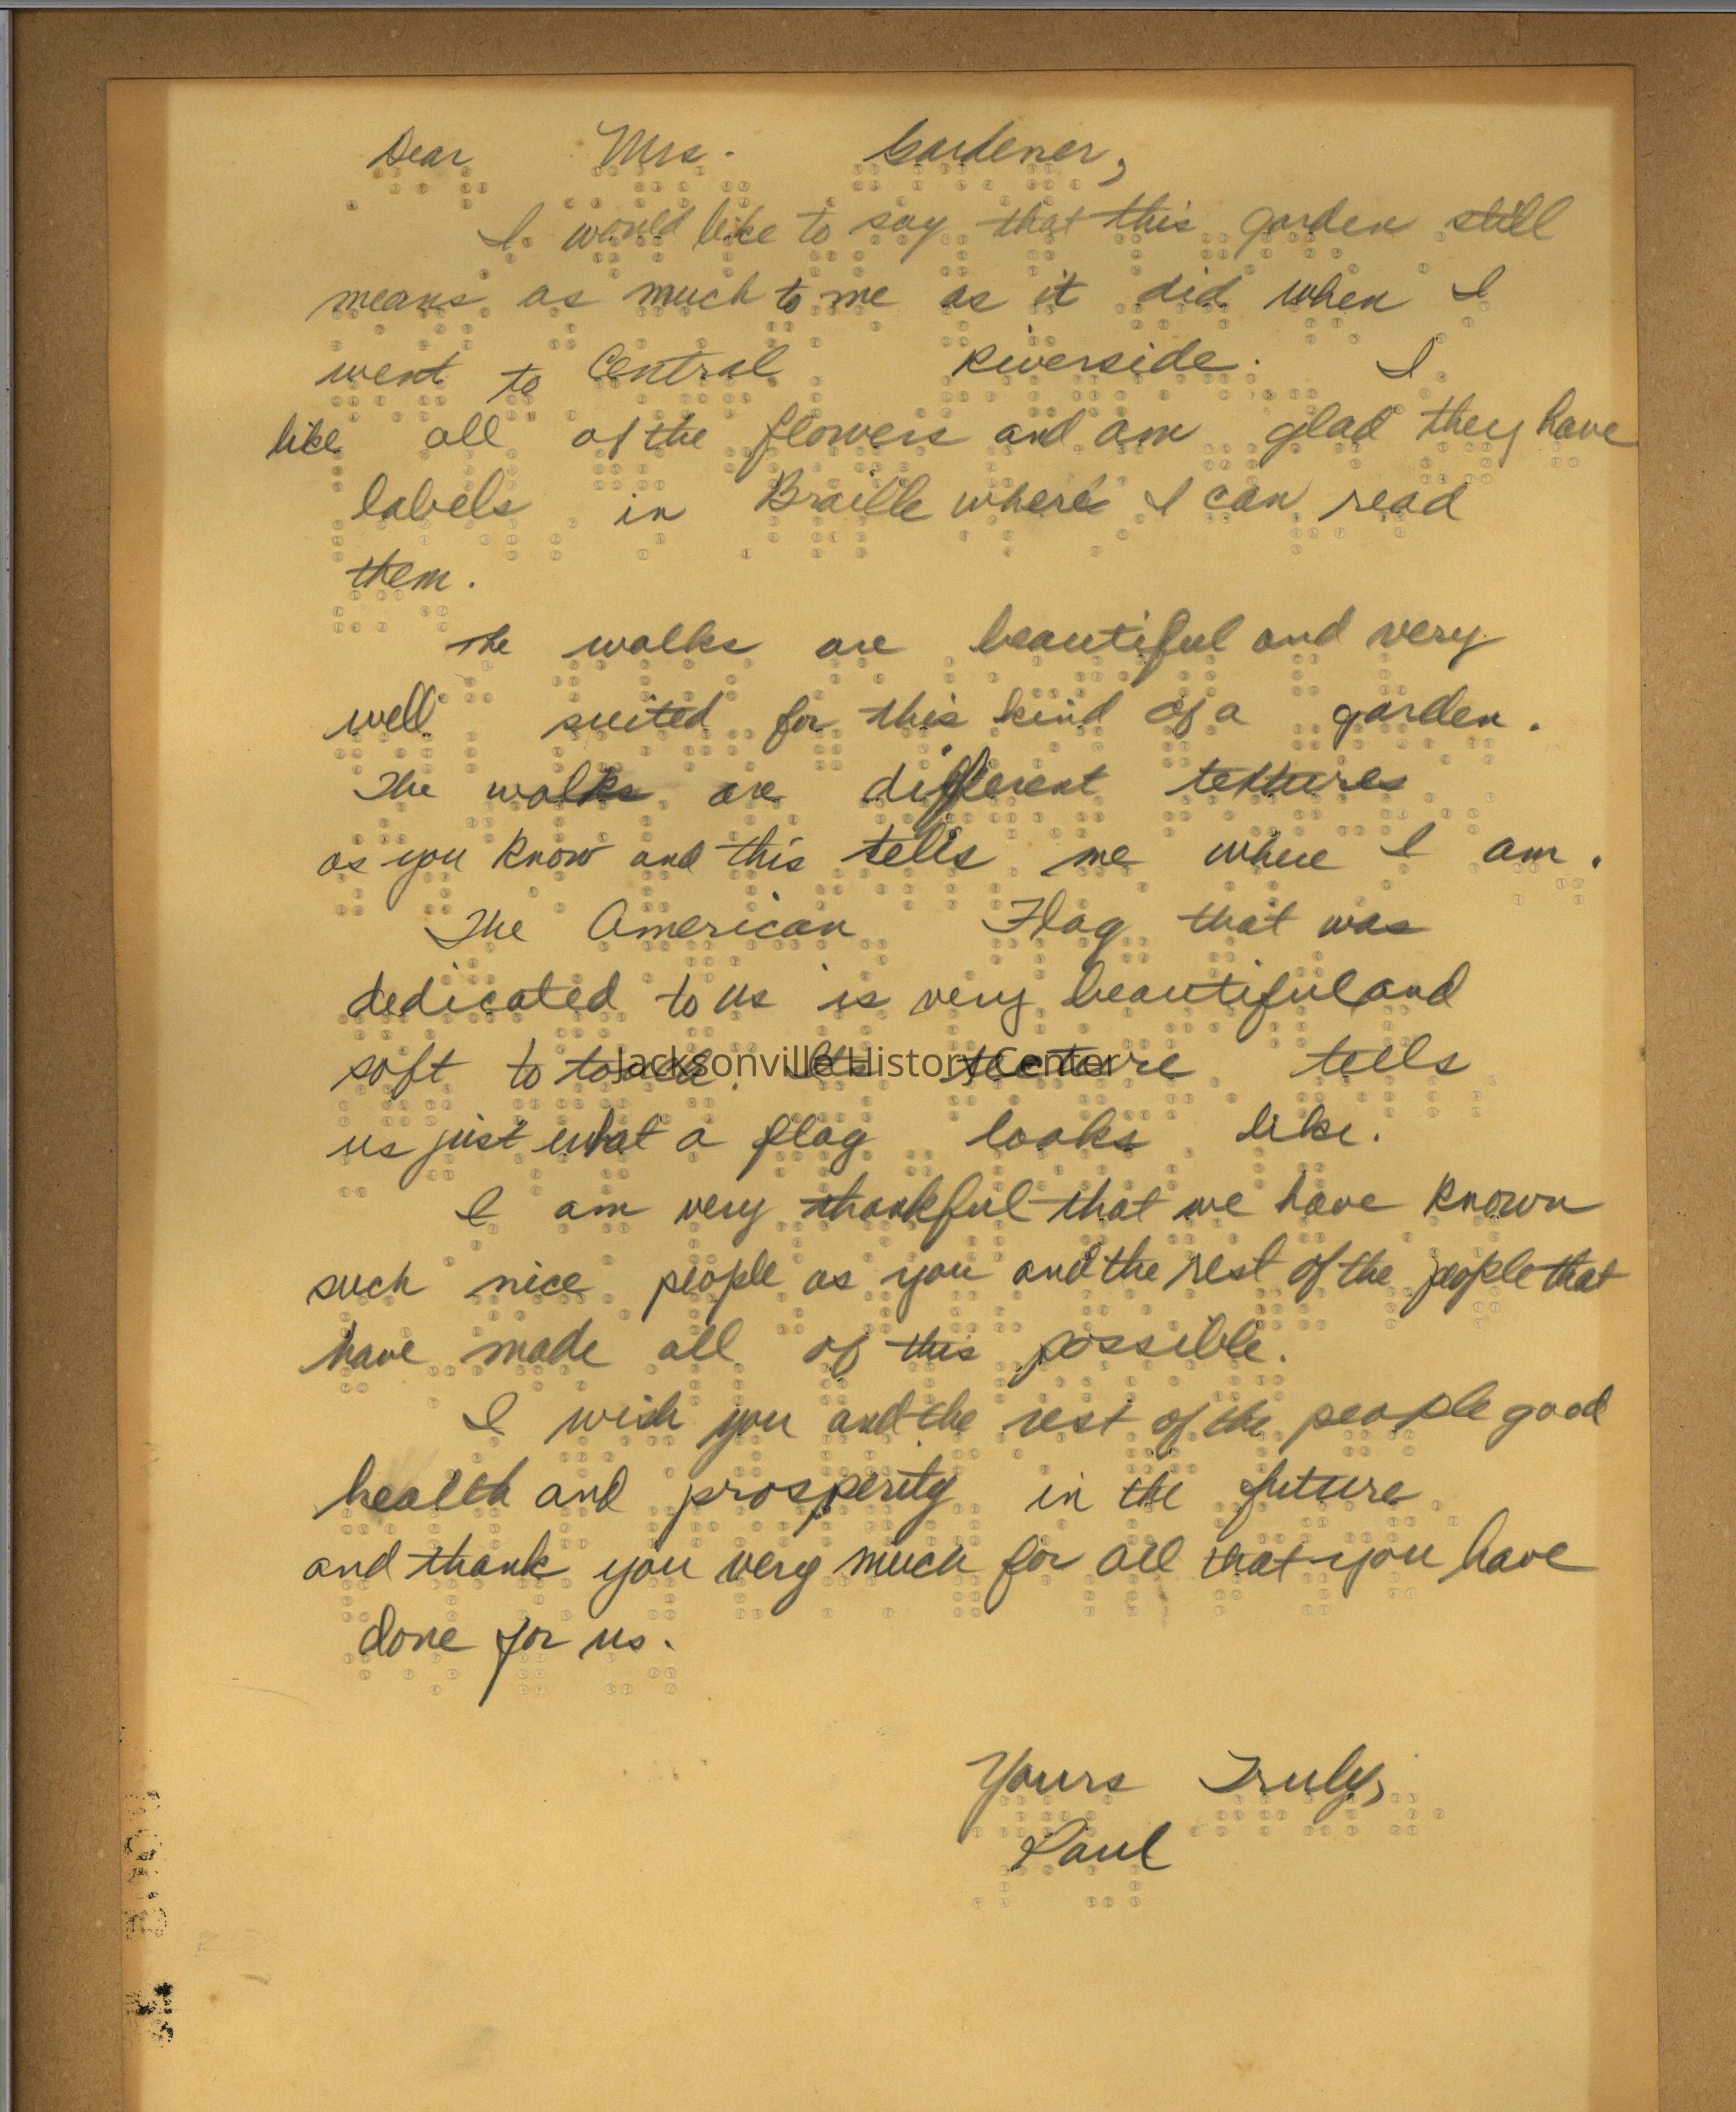 Dear Mrs. Gardener,
I would like to say that this garden still
means as much to me as it did when I
went to Central Riverside. I
like all of the flowers and am glad they have
labels in Braille where I can read
them.
The walks are beautiful and very
well suited for this kind of a garden.
The walks are different textures
as you know and this tells me where I am.
The American Flag that was
dedicated to us is very beautiful and
soft to touch. Its texture tells
us just what a flag looks like.
I am very thankful that we have known
such nice people as you and the rest of the people that
have made all of this possible.
I wish you and the rest of the people good
health and prosperity in the future
and thank you very much for all that you have
done for us.
Yours Truly,
Paul
Jacksonville History Center